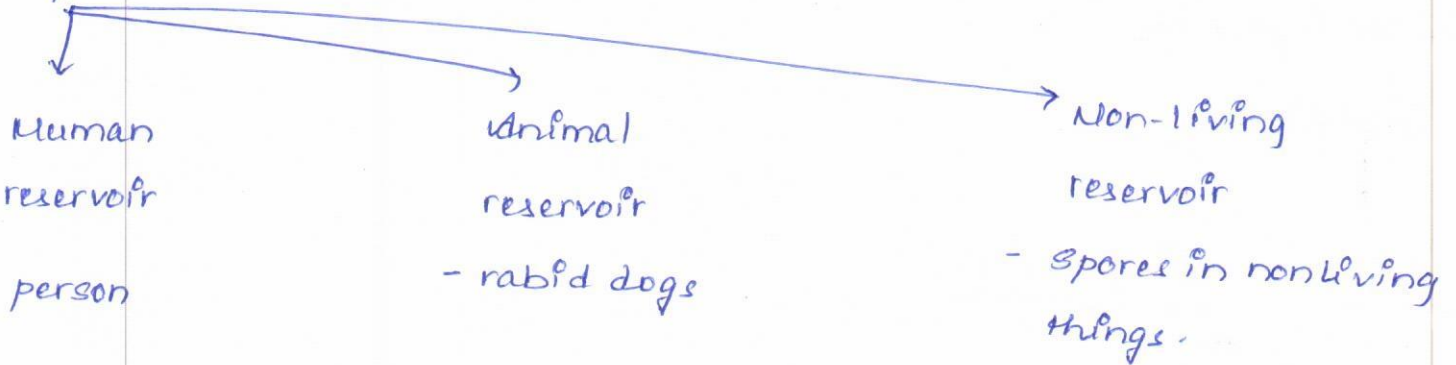 Human
reservoir
person
Animal
reservoir
- rabid dogs
Non-living
reservoir
- spores in nonliving
things.